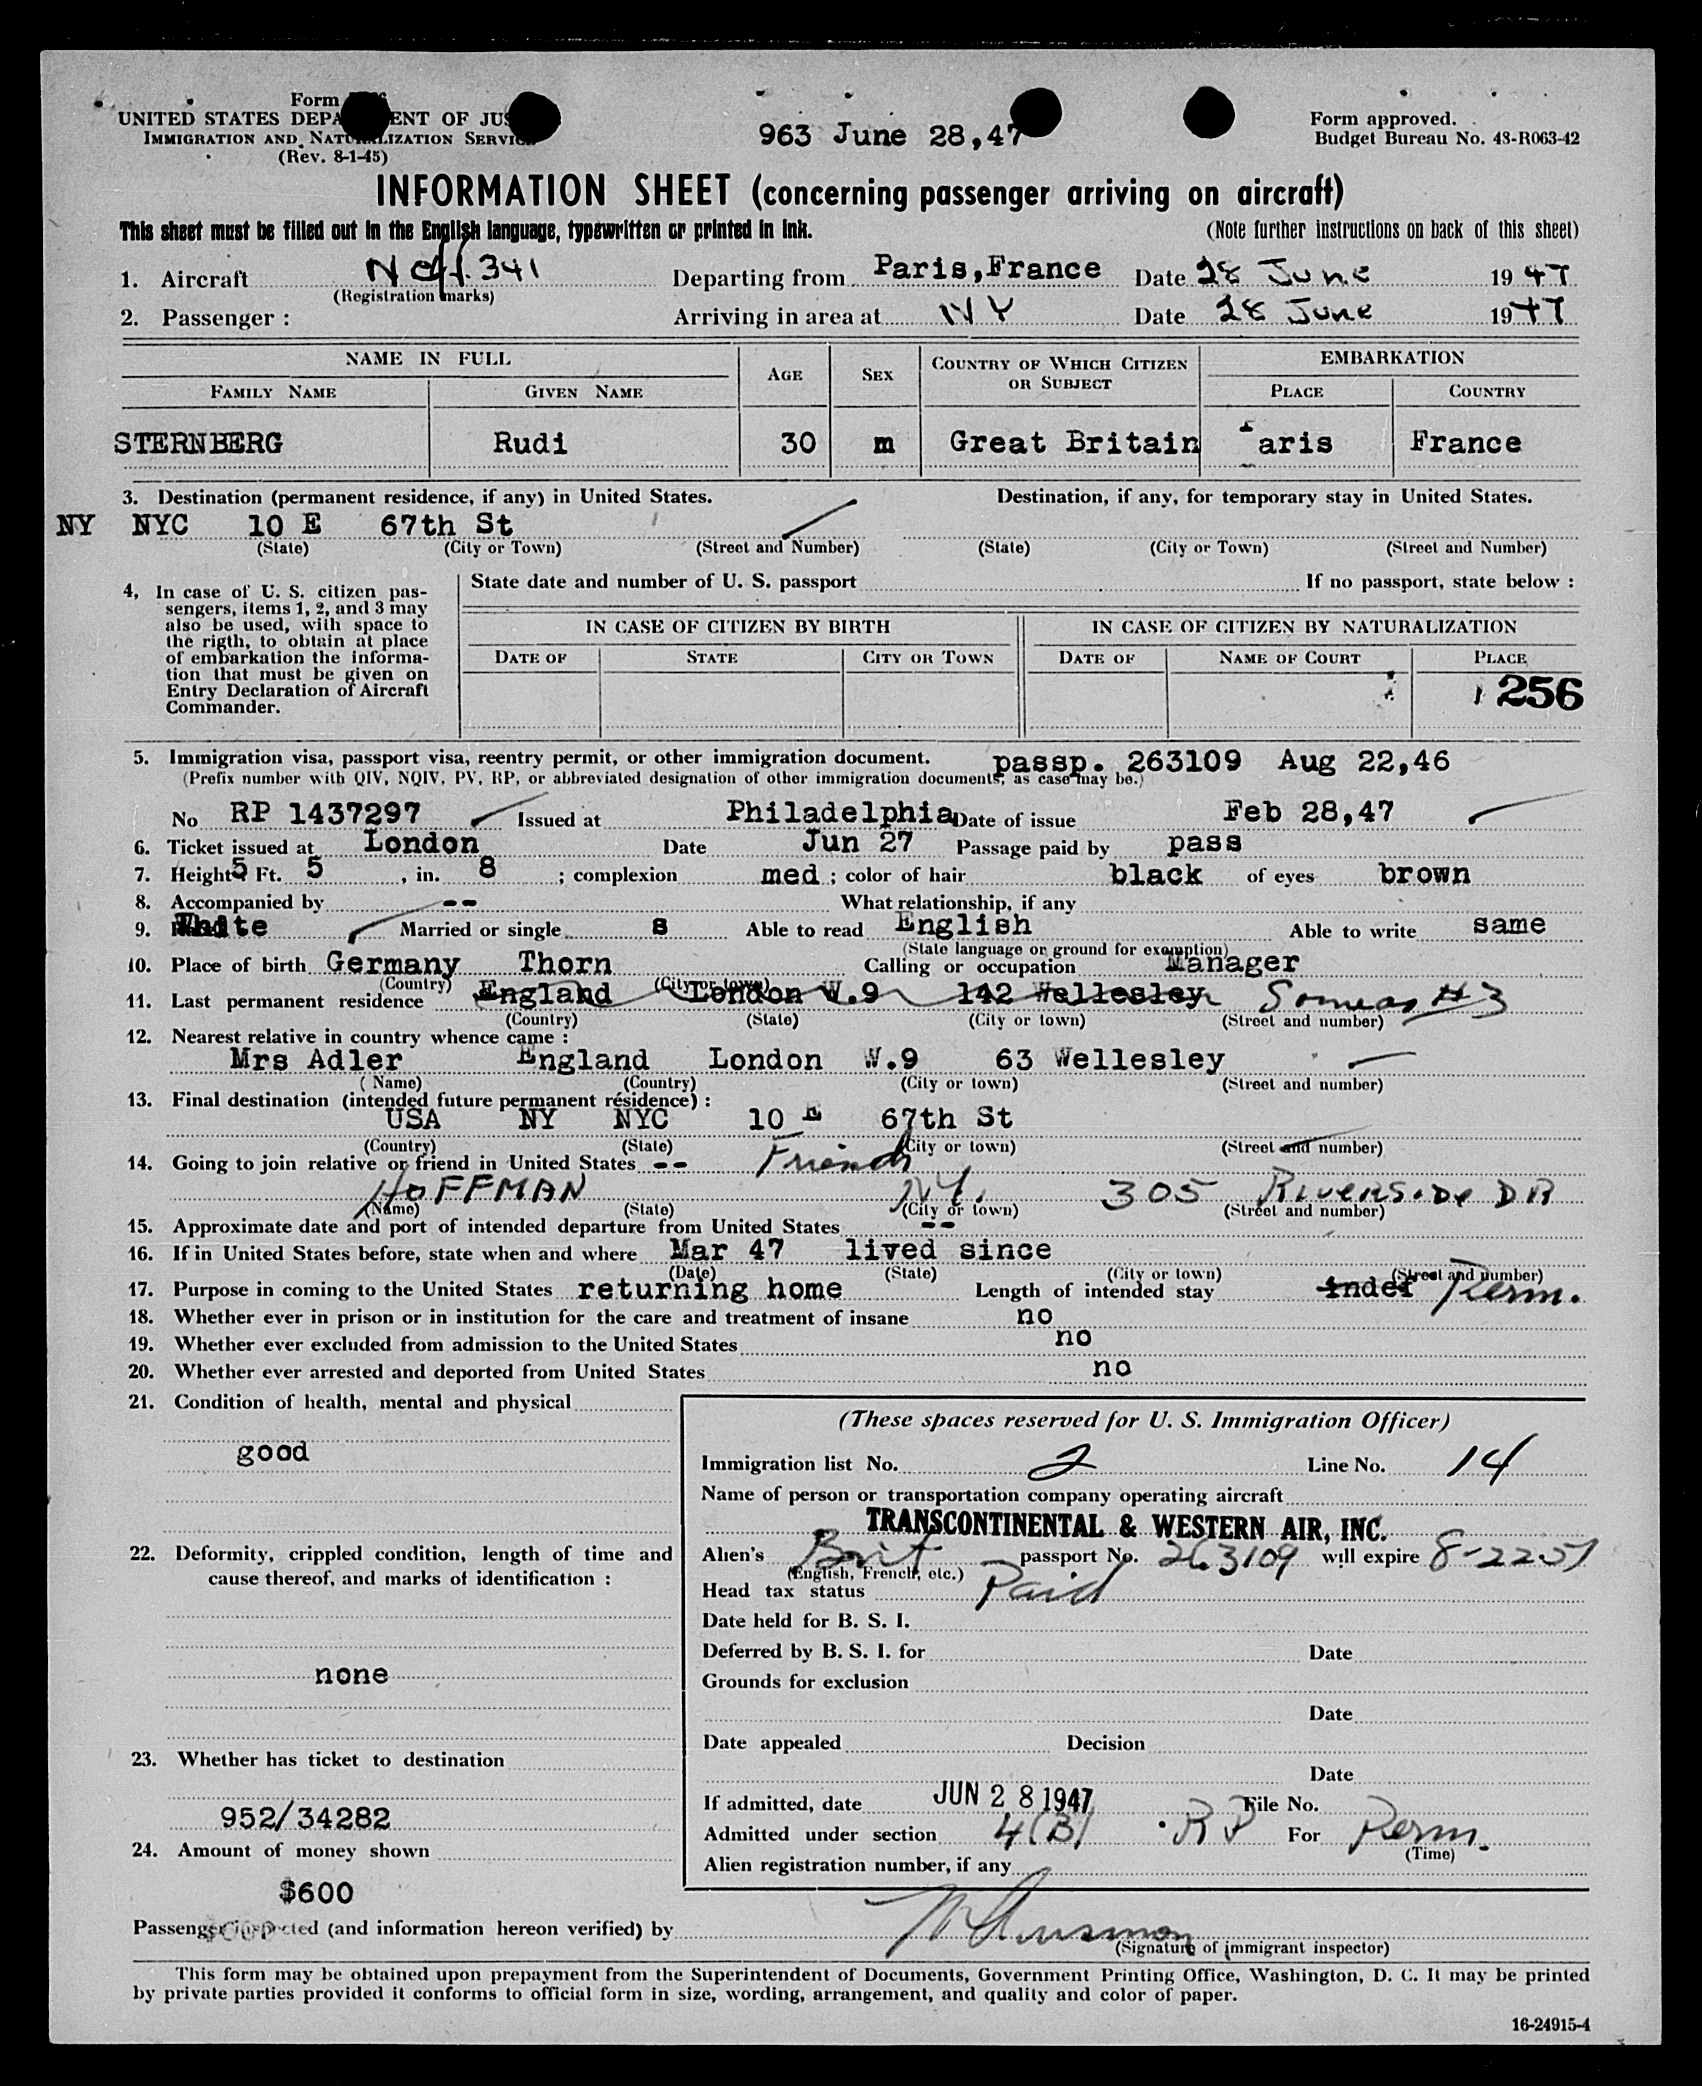 Form
UNITED STATES DEPA ENT OF JUS
IMMIGRATION AND NATURALIZATION SERVICE
(Rev. 8-1-45)
963 June 28,47
Form approved.
Budget Bureau No. 43-R063-42
INFORMATION SHEET (concerning passenger arriving on aircraft)
This sheet must be filled out in the English language, typewritten or printed in ink.
(Note further instructions on back of this sheet)
1. Aircraft 341 Departing from Paris,France Date 28 June 1947
(Registration marks)
2. Passenger : Arriving in area at NY Date 28 June 1947
NAME IN FULL AGE SEX COUNTRY OF WHICH CITIZEN OR SUBJECT EMBARKATION
FAMILY NAME GIVEN NAME PLACE COUNTRY
STERNBERG Rudi 30 m Great Britain aris France
3. Destination (permanent residence, if any) in United States. Destination, if any, for temporary stay in United States.
NY NYC 10 E 67th St
(State) (City or Town) (Street and Number) (State) (City or Town) (Street and Number)
4, In case of U. S. citizen pas-
sengers, items 1, 2, and 3 may
also be used, with space to
the rigth, to obtain at place
of embarkation the informa-
tion that must be given on
Entry Declaration of Aircraft
Commander.
State date and number of U. S. passport If no passport, state below :
IN CASE OF CITIZEN BY BIRTH IN CASE OF CITIZEN BY NATURALIZATION
DATE OF STATE CITY OR TOWN DATE OF NAME OF COURT PLACE
256
5. Immigration visa, passport visa, reentry permit, or other immigration document. passp. 263109 Aug 22,46
(Prefix number with QIV, NQIV, PV, RP, or abbreviated designation of other immigration documents, as case may be.)
No RP 1437297 Issued at Philadelphia Date of issue Feb 28,47
6. Ticket issued at London Date Jun 27 Passage paid by pass
7. Height 5 Ft. 5 , in. 8 ; complexion med ; color of hair black of eyes brown
8. Accompanied by -- What relationship, if any
9. White Married or single s Able to read English Able to write same
(State language or ground for exemption)
10. Place of birth Germany Thorn Calling or occupation Manager
(Country) (City or town)
11. Last permanent residence England London W.9 142 Wellesley Same as #3
(Country) (State) (City or town) (Street and number)
12. Nearest relative in country whence came :
Mrs Adler England London W.9 63 Wellesley
(Name) (Country) (City or town) (Street and number)
13. Final destination (intended future permanent résidence) :
USA NY NYC 10 E 67th St
(Country) (State) (City or town) (Street and number)
14. Going to join relative or friend in United States -- Friend
HOFFMAN N.Y. 305 RIVERSIDE DR
(Name) (State) (City or town) (Street and number)
15. Approximate date and port of intended departure from United States --
16. If in United States before, state when and where Mar 47 lived since
(Date) (State) (City or town) (Street and number)
17. Purpose in coming to the United States returning home Length of intended stay indef Perm.
18. Whether ever in prison or in institution for the care and treatment of insane no
19. Whether ever excluded from admission to the United States no
20. Whether ever arrested and deported from United States no
21. Condition of health, mental and physical
good
22. Deformity, crippled condition, length of time and
cause thereof, and marks of identification :
none
23. Whether has ticket to destination
952/34282
24. Amount of money shown
$600
(These spaces reserved for U. S. Immigration Officer)
Immigration list No. 2 Line No. 14
Name of person or transportation company operating aircraft
TRANSCONTINENTAL & WESTERN AIR, INC.
Alien's Brit passport No. 263109 will expire 8-22-51
(English, French, etc.)
Head tax status Paid
Date held for B. S. I.
Deferred by B. S. I. for Date
Grounds for exclusion
Date
Date appealed Decision
Date
If admitted, date JUN 28 1947 File No.
Admitted under section 4(B) RP For Perm.
(Time)
Alien registration number, if any
Passenger inspected (and information hereon verified) by
(Signature of immigrant inspector)
This form may be obtained upon prepayment from the Superintendent of Documents, Government Printing Office, Washington, D. C. It may be printed
by private parties provided it conforms to official form in size, wording, arrangement, and quality and color of paper.
16-24915-4